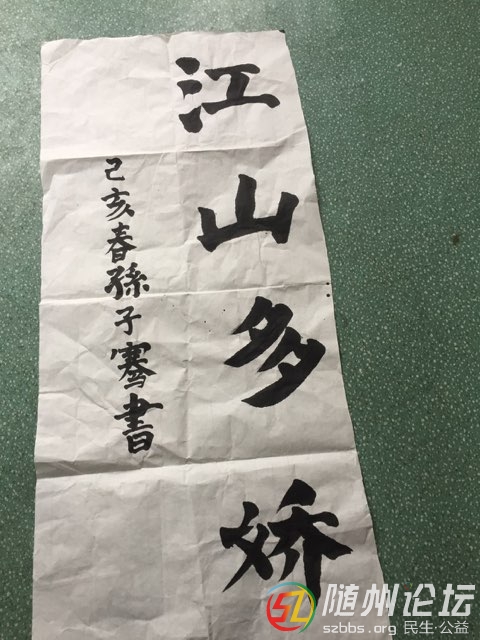 江山多娇
己亥春孫子骞書
随州论坛
szbbs.org 民生·公益